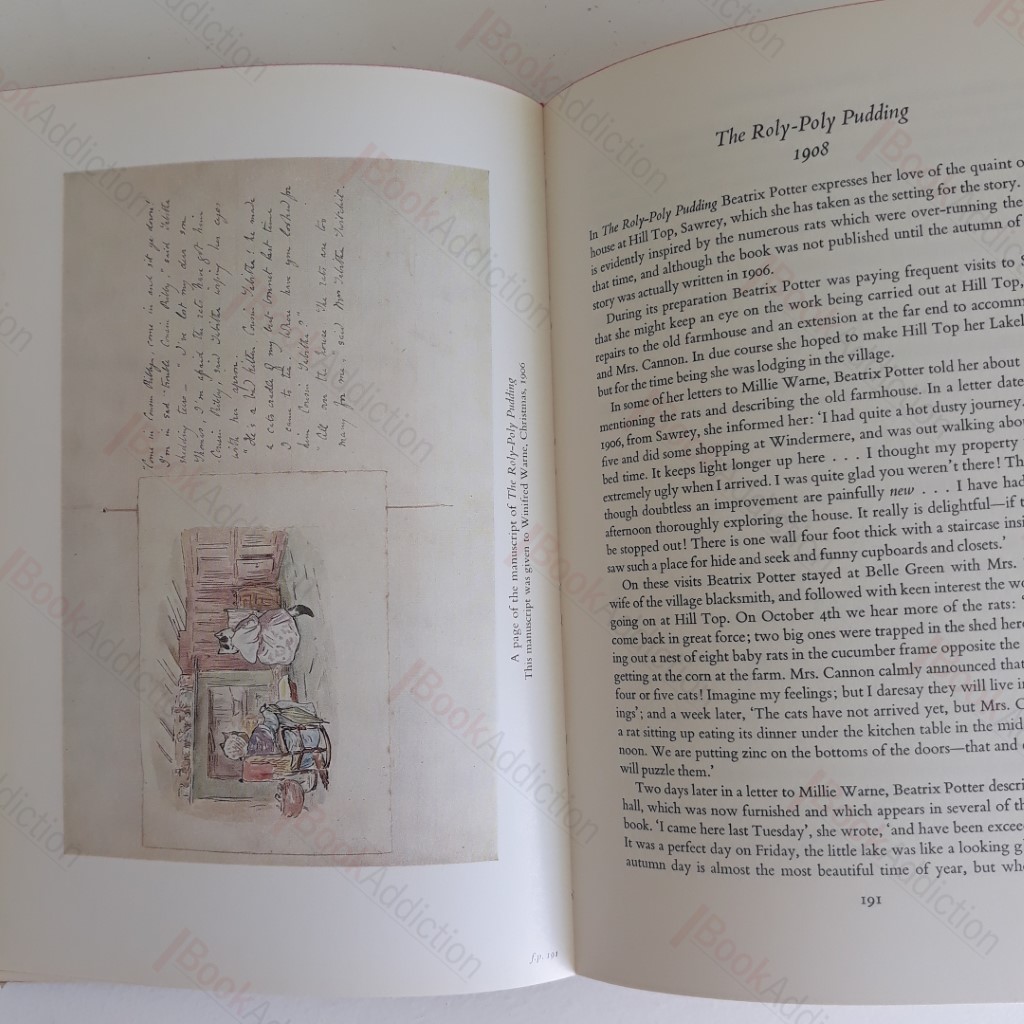 "Come in Cousin Ribby, come in and sit ye down!
I'm in sad trouble Cousin Ribby," said Tabitha
shedding tears – "I've lost my dear son
Thomas, I'm afraid the rats have got him
Cousin Ribby, said Tabitha wiping her eyes
with her apron.
"He's a bad kitten Cousin Tabitha; he made
a cats cradle of my best bonnet last time
I came to tea. Where have you looked for
him Cousin Tabitha?"
"All over the house! The rats are too
many for me," said Mrs Tabitha Twitchit.
A page of the manuscript of The Roly-Poly Pudding
This manuscript was given to Winifred Warne, Christmas, 1906
f.p. 191
The Roly-Poly Pudding
1908
In The Roly-Poly Pudding Beatrix Potter expresses her love of the quaint
house at Hill Top, Sawrey, which she has taken as the setting for the story.
is evidently inspired by the numerous rats which were over-running the
that time, and although the book was not published until the autumn of
story was actually written in 1906.
During its preparation Beatrix Potter was paying frequent visits to
that she might keep an eye on the work being carried out at Hill Top,
repairs to the old farmhouse and an extension at the far end to accomm
and Mrs. Cannon. In due course she hoped to make Hill Top her Lakel
but for the time being she was lodging in the village.
In some of her letters to Millie Warne, Beatrix Potter told her about
mentioning the rats and describing the old farmhouse. In a letter date
1906, from Sawrey, she informed her: 'I had quite a hot dusty journey.
five and did some shopping at Windermere, and was out walking abo
bed time. It keeps light longer up here . . . I thought my property
extremely ugly when I arrived. I was quite glad you weren't there! Th
though doubtless an improvement are painfully new . . . I have had
afternoon thoroughly exploring the house. It really is delightful—if t
be stopped out! There is one wall four foot thick with a staircase insi
saw such a place for hide and seek and funny cupboards and closets.'
On these visits Beatrix Potter stayed at Belle Green with Mrs.
wife of the village blacksmith, and followed with keen interest the wo
going on at Hill Top. On October 4th we hear more of the rats: '
come back in great force; two big ones were trapped in the shed here
ing out a nest of eight baby rats in the cucumber frame opposite the
getting at the corn at the farm. Mrs. Cannon calmly announced that
four or five cats! Imagine my feelings; but I daresay they will live i
ings'; and a week later, 'The cats have not arrived yet, but Mrs. C
a rat sitting up eating its dinner under the kitchen table in the mid
noon. We are putting zinc on the bottoms of the doors—that and
will puzzle them.'
Two days later in a letter to Millie Warne, Beatrix Potter descri
hall, which was now furnished and which appears in several of th
book. 'I came here last Tuesday', she wrote, 'and have been excee
It was a perfect day on Friday, the little lake was like a looking g
autumn day is almost the most beautiful time of year, but wh
191
BookAddiction